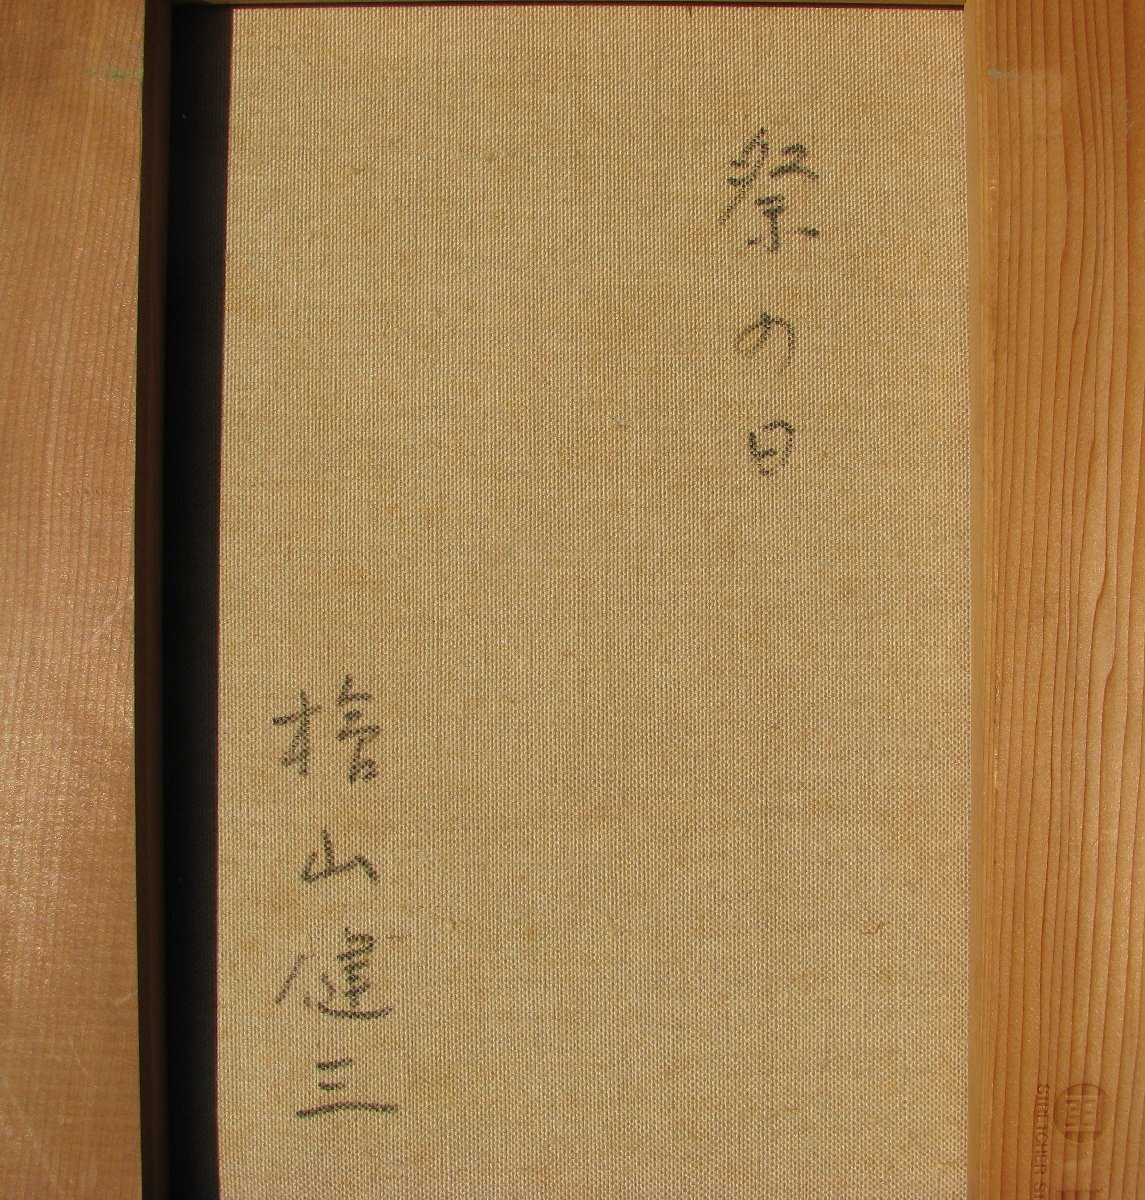 祭の日
檜山健三
STRETCHER